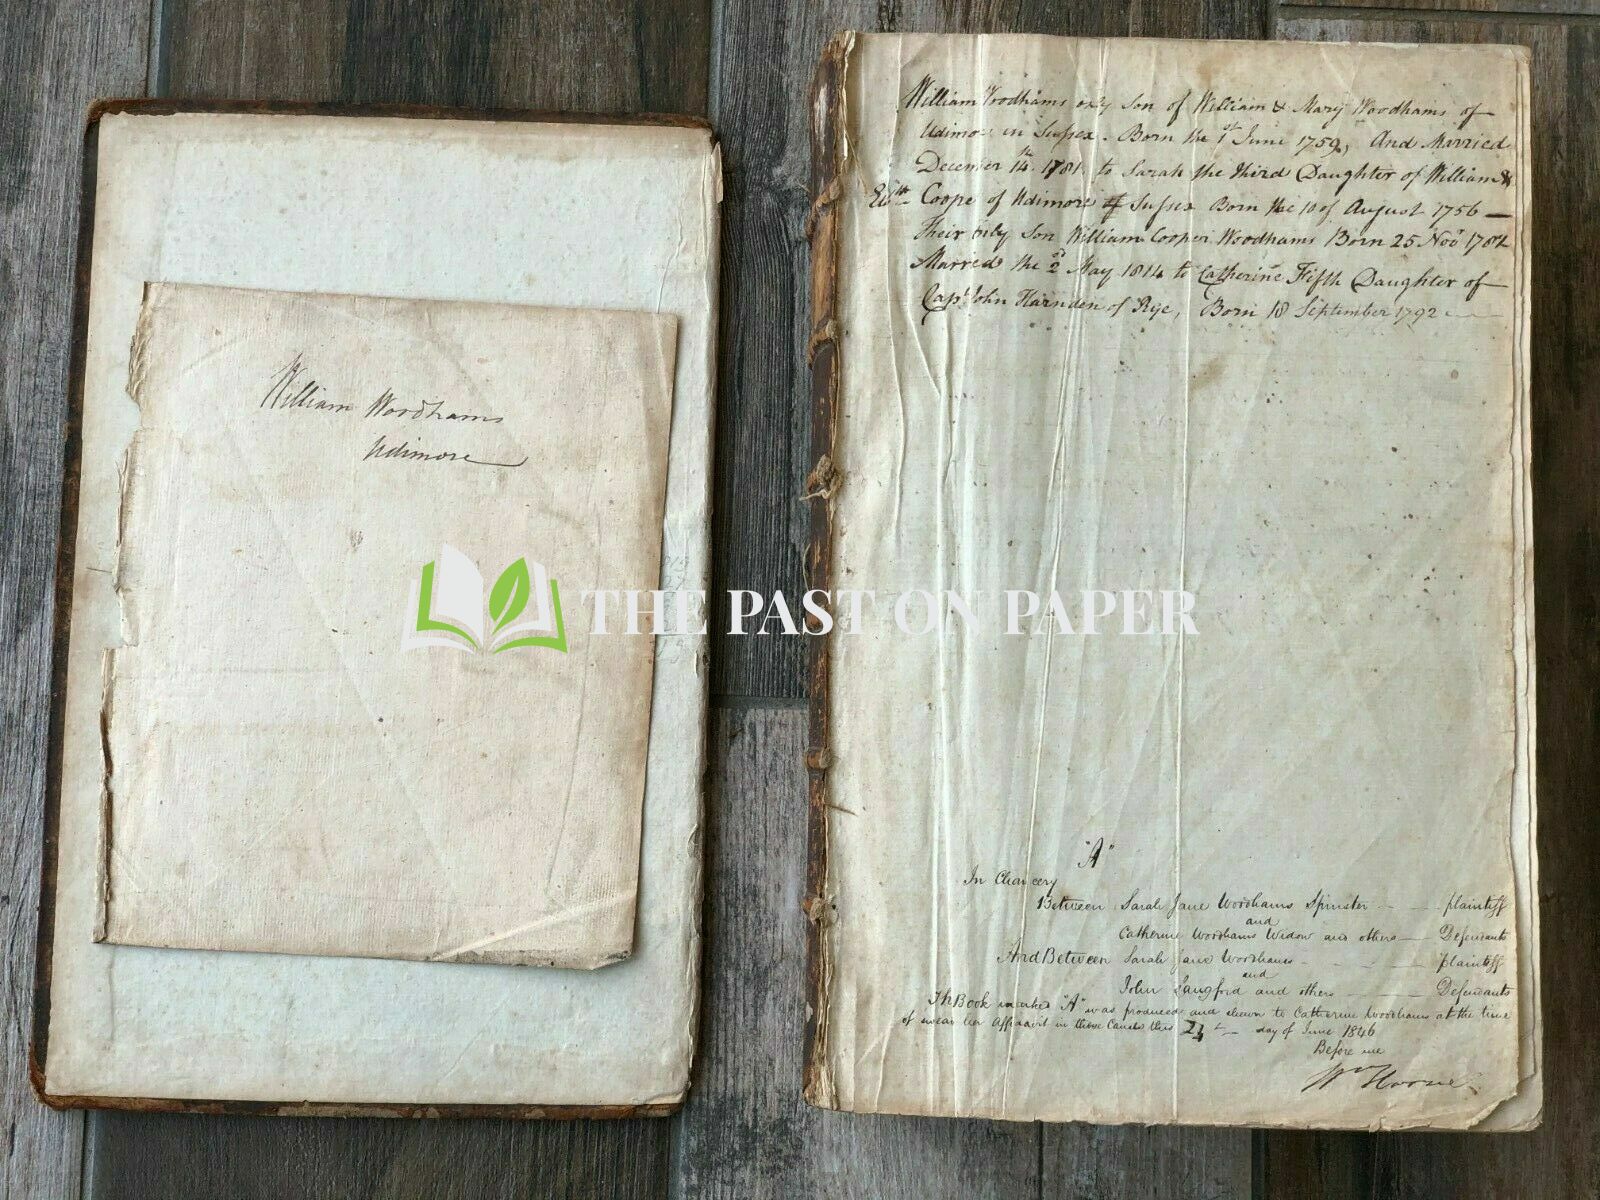 William Woodhams
Udimore
THE PAST ON PAPER
William Woodhams only Son of William & Mary Woodhams of
Udimore in Sussex. Born the 1st June 1759, And Married
Decemer 14th 1781. to Sarah the third Daughter of William &
Elizth Coope of Udimore Sussex Born the 10 of August 1756 —
Their only Son William Cooper Woodhams Born 25 Novr
Marred the 2d May 1814 to Catherine Fifth Daughter of
Capt John Harnden of Rye, Born 18 September 1792
"A"
In Chancery
Between Sarah Jane Woodhams Spinster - - plaintiff
and
Catherine Woodhams Widow and others — Defendants
And Between Sarah Jane Woodhams - - - plaintiff
and
John Langford and others — Defendants
Th Book marked "A" was produced and shewn to Catherine Woodhams at the time
of swear her Affidavit in these Causes this day of June 1846
Before me
Wm